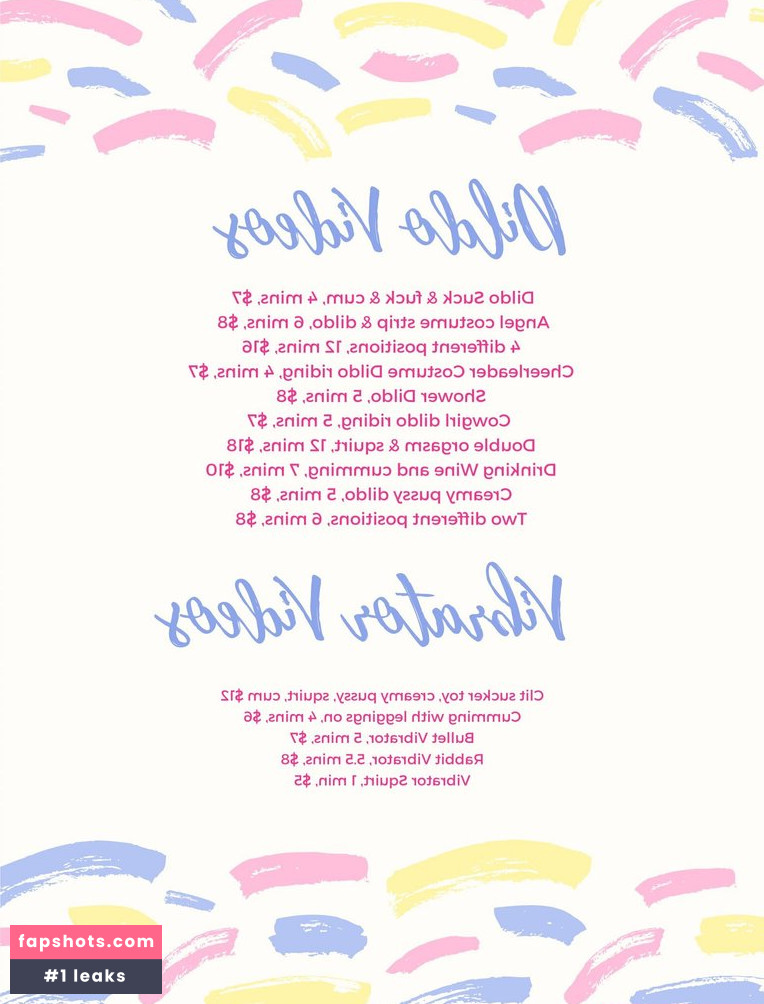 Dildo Videos
Dildo Suck & fuck & cum, 4 mins, $7
Angel costume strip & dildo, 6 mins, $8
4 different positions, 12 mins, $16
Cheerleader Costume Dildo riding, 4 mins, $7
Shower Dildo, 5 mins, $8
Cowgirl dildo riding, 5 mins, $7
Double orgasm & squirt, 12 mins, $18
Drinking Wine and cumming, 7 mins, $10
Creamy pussy dildo, 5 mins, $8
Two different positions, 6 mins, $8
Vibrator Videos
Clit sucker toy, creamy pussy, squirt, cum $12
Cumming with leggings on, 4 mins, $6
Bullet Vibrator, 5 mins, $7
Rabbit Vibrator, 5.5 mins, $8
Vibrator Squirt, 1 min, $5
fapshots.com
#1 leaks